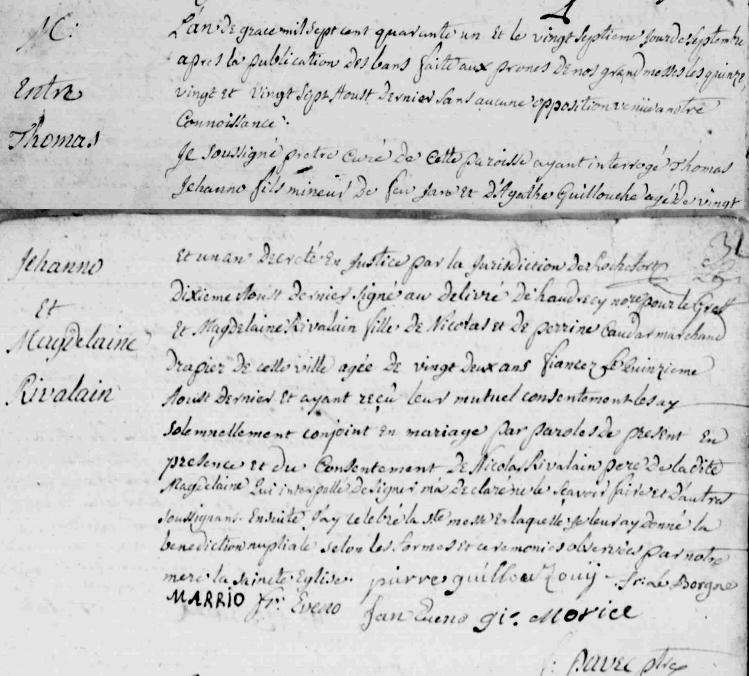 M:
Entre
Thomas
L'an de grace mil sept cent quarante un et le vingt septieme jour de septembre
apres la publication des bans faite aux prones de nos grand messes les quinze,
vingt et vingt sept Aoust dernier sans aucune opposition venüe a notre
Connoissance.
Je soussigné pretre curé de cette paroisse ayant interrogé Thomas
Jehanno fils mineur de feu Jan et d'Agathe Guillouche agé de vingt
Jehanno
Et
Magdelaine
Rivalain
31
et un an decreté en justice par la Jurisdiction de Rochefort
dixieme Aoust dernier signé au delivré de haudrecy pour le Gref
Et Magdelaine Rivalain fille de Nicolas et de perrine Caudar marchand
drapier de cette ville agée de vingt deux ans fiancez le quinzieme
Aoust dernier et ayant reçû leur mutuel consentement les ay
solemnellement conjoint en mariage par paroles de present en
presence et du Consentement de Nicolas Rivalain pere de la dite
Magdelaine qui interpellé de signer m'a declaré ne le scavoir faire et d'autres
soussignans. Ensuite j'ay celebré la ste messe en laquelle je leur ay donné la
benediction nuptiale selon les formes et ceremonies observées par notre
mere la saincte Eglise. pierre guillou Le Borgne
MARRIO fr. Eveno Jan Eveno gi. Morice
pavec ptre